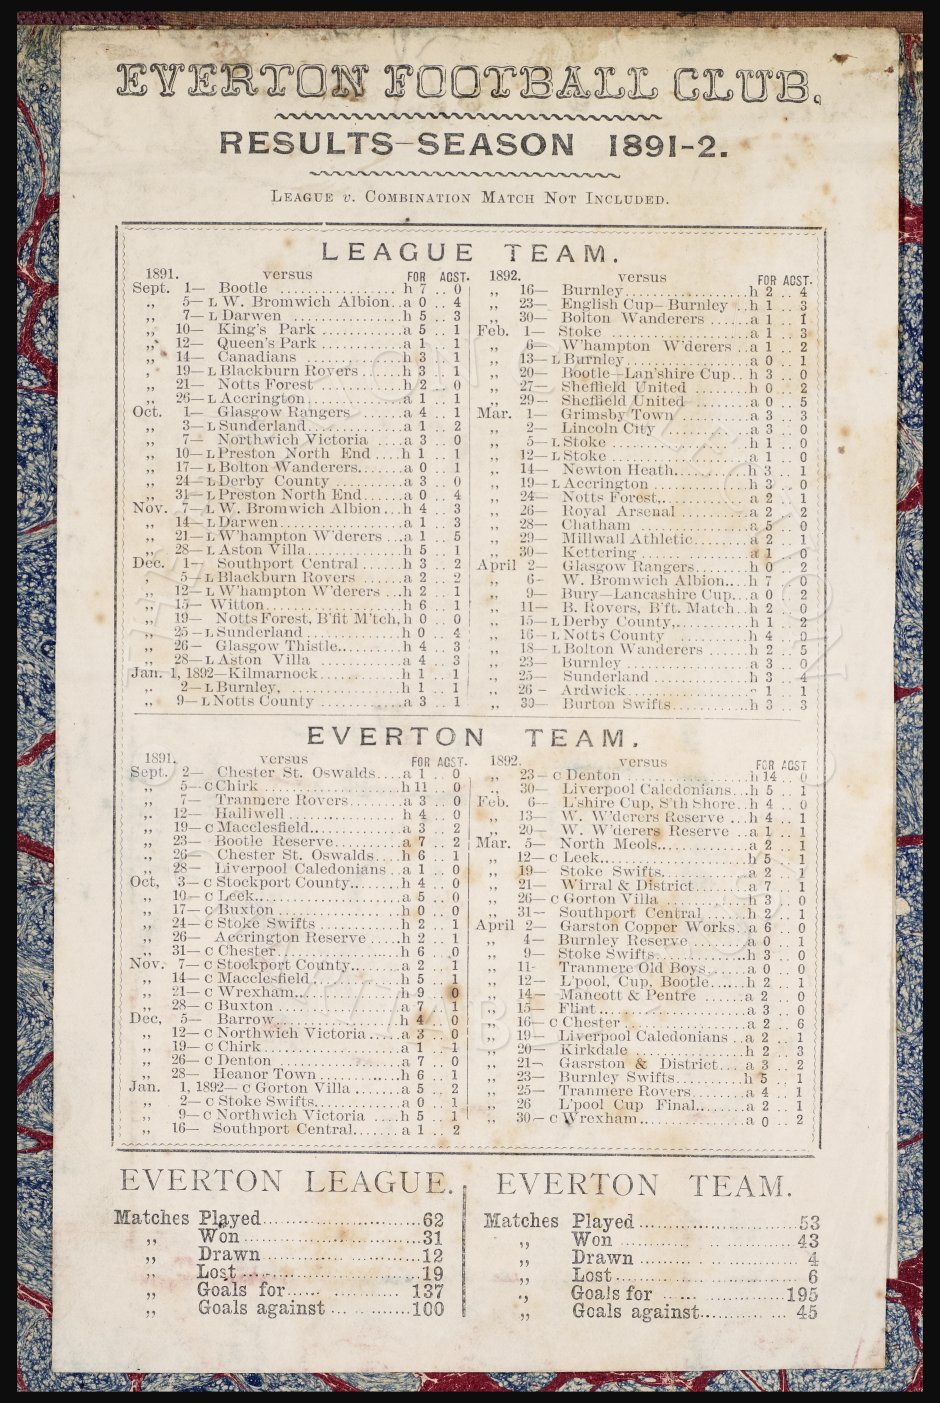 EVERTON FOOTBALL CLUB.
RESULTS–SEASON 1891-2.
LEAGUE v. COMBINATION MATCH NOT INCLUDED.
LEAGUE TEAM.
1891. versus FOR AGST.
Sept. 1— Bootle ................. h 7 .. 0
,, 5— L W. Bromwich Albion.. a 0 .. 4
,, 7— L Darwen ............. h 5 .. 3
,, 10— King's Park ............ a 5 .. 1
,, 12— Queen's Park ............ a 1 .. 1
,, 14— Canadians .............. h 3 .. 1
, 19— L Blackburn Rovers ...... h 3 .. 1
,, 21— Notts Forest ............ h 2 .. 0
,, 26— L Accrington ............ a 1 .. 1
Oct. 1— Glasgow Rangers ...... a 4 .. 1
,, 3— L Sunderland ............ a 1 .. 2
,, 7— Northwich Victoria .... a 3 .. 0
,, 10— L Preston North End .... h 1 .. 1
,, 17— L Bolton Wanderers...... a 0 .. 1
,, 24— L Derby County ........ a 3 .. 0
,, 31— L Preston North End..... a 0 .. 4
Nov. 7— L W. Bromwich Albion ... h 4 .. 3
,, 14— L Darwen................. a 1 .. 3
,, 21— L W'hampton W'derers ... a 1 .. 5
,, 28— L Aston Villa............. h 5 .. 1
Dec. 1— Southport Central ...... h 3 .. 2
, 5— L Blackburn Rovers ...... a 2 .. 2
,, 12— L W'hampton W'derers ... h 2 .. 1
,, 15— Witton................... h 6 .. 1
,, 19— Notts Forest, B'fit M'tch, h 0 .. 0
,, 25— L Sunderland ............ h 0 .. 4
,, 26— Glasgow Thistle.......... h 4 .. 3
,, 28— L Aston Villa ........... a 4 .. 3
Jan. 1, 1892—Kilmarnock............ h 1 .. 1
,, 2— L Burnley, ............... h 1 .. 1
,, 9— L Notts County .......... a 3 .. 1
1892. versus FOR AGST.
,, 16— Burnley.................. h 2 .. 4
,, 23— English Cup—Burnley .. h 1 .. 3
,, 30— Bolton Wanderers ...... a 1 .. 1
Feb. 1— Stoke .................. a 1 .. 3
,, 6— W'hampton W'derers .. a 1 .. 2
,, 13— L Burnley................ a 0 .. 1
,, 20— Bootle—Lan'shire Cup.. h 3 .. 0
,, 27— Sheffield United ........ h 0 .. 2
,, 29— Sheffield United ........ a 0 .. 5
Mar. 1— Grimsby Town .......... a 3 .. 3
,, 2— Lincoln City ............ a 3 .. 0
,, 5— L Stoke .................. h 1 .. 0
,, 12— L Stoke .................. a 1 .. 0
,, 14— Newton Heath............ h 3 .. 1
,, 19— L Accrington ............ h 3 .. 0
,, 24— Notts Forest,............ a 2 .. 1
,, 26— Royal Arsenal .......... a 2 .. 2
,, 28— Chatham ............... a 5 .. 0
,, 29— Millwall Athletic........ a 2 .. 1
,, 30— Kettering ............... a 1 .. 0
April 2— Glasgow Rangers........ h 0 .. 2
,, 6- W. Bromwich Albion.... h 7 .. 0
,, 9— Bury—Lancashire Cup... a 0 .. 2
,, 11— B. Rovers, B'ft. Match.. h 2 .. 0
,, 15— L Derby County,.......... h 1 .. 2
,, 16— L Notts County .......... h 4 .. 0
,, 18— L Bolton Wanderers ...... h 2 .. 5
,, 23— Burnley ................. a 3 .. 0
,, 25— Sunderland ............. h 3 .. 4
,, 26 - Ardwick................. 1 .. 1
,, 30— Burton Swifts........... h 3 .. 3
EVERTON TEAM.
1891. versus FOR AGST.
Sept. 2— Chester St. Oswalds.... a 1 .. 0
,, 5— C Chirk ................. h 11 .. 0
,, 7— Tranmere Rovers........ a 3 .. 0
,, 12— Halliwell ............... h 4 .. 0
,, 19— C Macclesfield............ a 3 .. 2
,, 23— Bootle Reserve.......... a 7 .. 2
,, 26— Chester St. Oswalds.... h 6 .. 1
,, 28— Liverpool Caledonians .. a 1 .. 0
Oct, 3— C Stockport County....... h 4 .. 0
,, 10— C Leek.................... a 5 .. 0
,, 17— C Buxton ................ h 0 .. 0
,, 24— C Stoke Swifts ........... h 2 .. 1
,, 26— Accrington Reserve ..... h 2 .. 1
,, 31— C Chester................. h 6 .. 0
Nov. 7— C Stockport County....... a 2 .. 1
,, 14— C Macclesfield ............ h 5 .. 1
,, 21— C Wrexham............... h 9 .. 0
,, 28— C Buxton ................ a 7 .. 1
Dec, 5— Barrow................. h 4 .. 0
12— C Northwich Victoria ..... a 3 .. 0
,, 19— C Chirk .................. a 1 .. 1
,, 26— C Denton ................ a 7 .. 0
,, 28— Heanor Town ........... h 6 .. 1
Jan. 1, 1892— C Gorton Villa ....... a 5 .. 2
,, 2— C Stoke Swifts............ a 0 .. 1
,, 9— C Northwich Victoria .... h 5 .. 1
,, 16— Southport Central....... a 1 .. 2
1892. versus FOR AGST
,, 23— C Denton ................ h 14 .. 0
,, 30— Liverpool Caledonians... h 5 .. 1
Feb. 6— L'shire Cup, S'th Shore.. h 4 .. 0
,, 13— W. W'derers Reserve ... h 4 .. 1
,, 20— W. W'derers Reserve .. a 1 .. 1
Mar. 5— North Meols............. a 2 .. 1
,, 12— C Leek.................... h 5 .. 1
,, 19— Stoke Swifts............. a 2 .. 1
,, 21— Wirral & District........ a 7 .. 1
,, 26— C Gorton Villa ........... h 3 .. 0
,, 31— Southport Central ...... h 2 .. 1
April 2— Garston Copper Works.. a 6 .. 0
,, 4— Burnley Reserve ....... a 0 .. 1
,, 9— Stoke Swifts............ h 3 .. 0
,, 11- Tranmere Old Boys...... a 0 .. 0
,, 12— L'pool, Cup, Bootle...... h 2 .. 1
,, 14— Mancott & Pentre ...... a 2 .. 0
,, 15— Flint.................... a 3 .. 0
,, 16— C Chester ................ a 2 .. 6
,, 19— Liverpool Caledonians .. a 2 .. 1
,, 20— Kirkdale ............... h 2 .. 3
,, 21— Gasrston & District... a 3 .. 2
,, 23— Burnley Swifts.......... h 5 .. 1
,, 25— Tranmere Rovers........ a 4 .. 1
,, 26 L'pool Cup Final........ a 2 .. 1
,, 30— C Wrexham .............. a 0 .. 2
EVERTON LEAGUE.
Matches Played............................62
,, Won ...............................31
,, Drawn ............................12
,, Lost ...............................19
,, Goals for...... ............. 137
,, Goals against ... ............100
EVERTON TEAM.
Matches Played ............................53
,, Won ...............................43
,, Drawn ............................ 4
,, Lost ............................... 6
,, Goals for ...... ...............195
,, Goals against............ ... 45